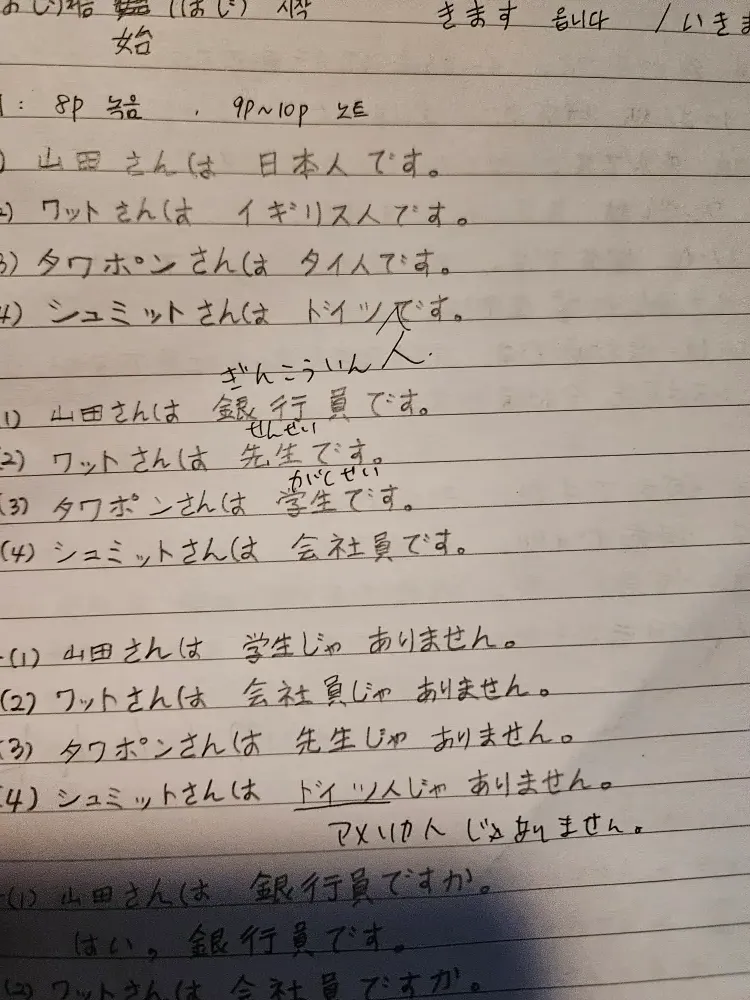 おじ)始 (はじ) 시작 きます 옵니다 / いきま
始
: 8p 녹음 . 9p~10p 노트
) 山田さんは 日本人です。
2) ワットさんは イギリス人です。
3) タワポンさんは タイ人です。
4) シュミットさんは ドイツです。
人.
ぎんこういん
(1) 山田さんは 銀行員です。
せんせい
(2) ワットさんは 先生です。
がくせい
(3) タワポンさんは 学生です。
(4) シュミットさんは 会社員です。
-(1) 山田さんは 学生じゃ ありません。
(2) ワットさんは 会社員じゃ ありません。
(3) タワポンさんは 先生じゃ ありません。
(4) シュミットさんは ドイツ人じゃ ありません。
アメリカ人 じゃありません。
-(1) 山田さんは 銀行員ですか。
はい。銀行員です。
(2) ワットさんは 会社員ですか。